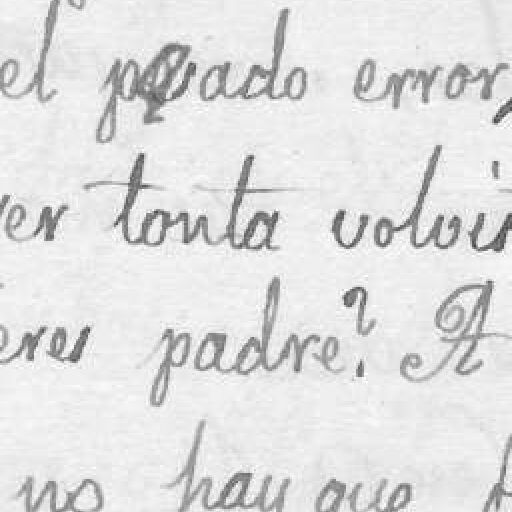 el pasado error,
er tonta volvi
eres padre? A
no hay que